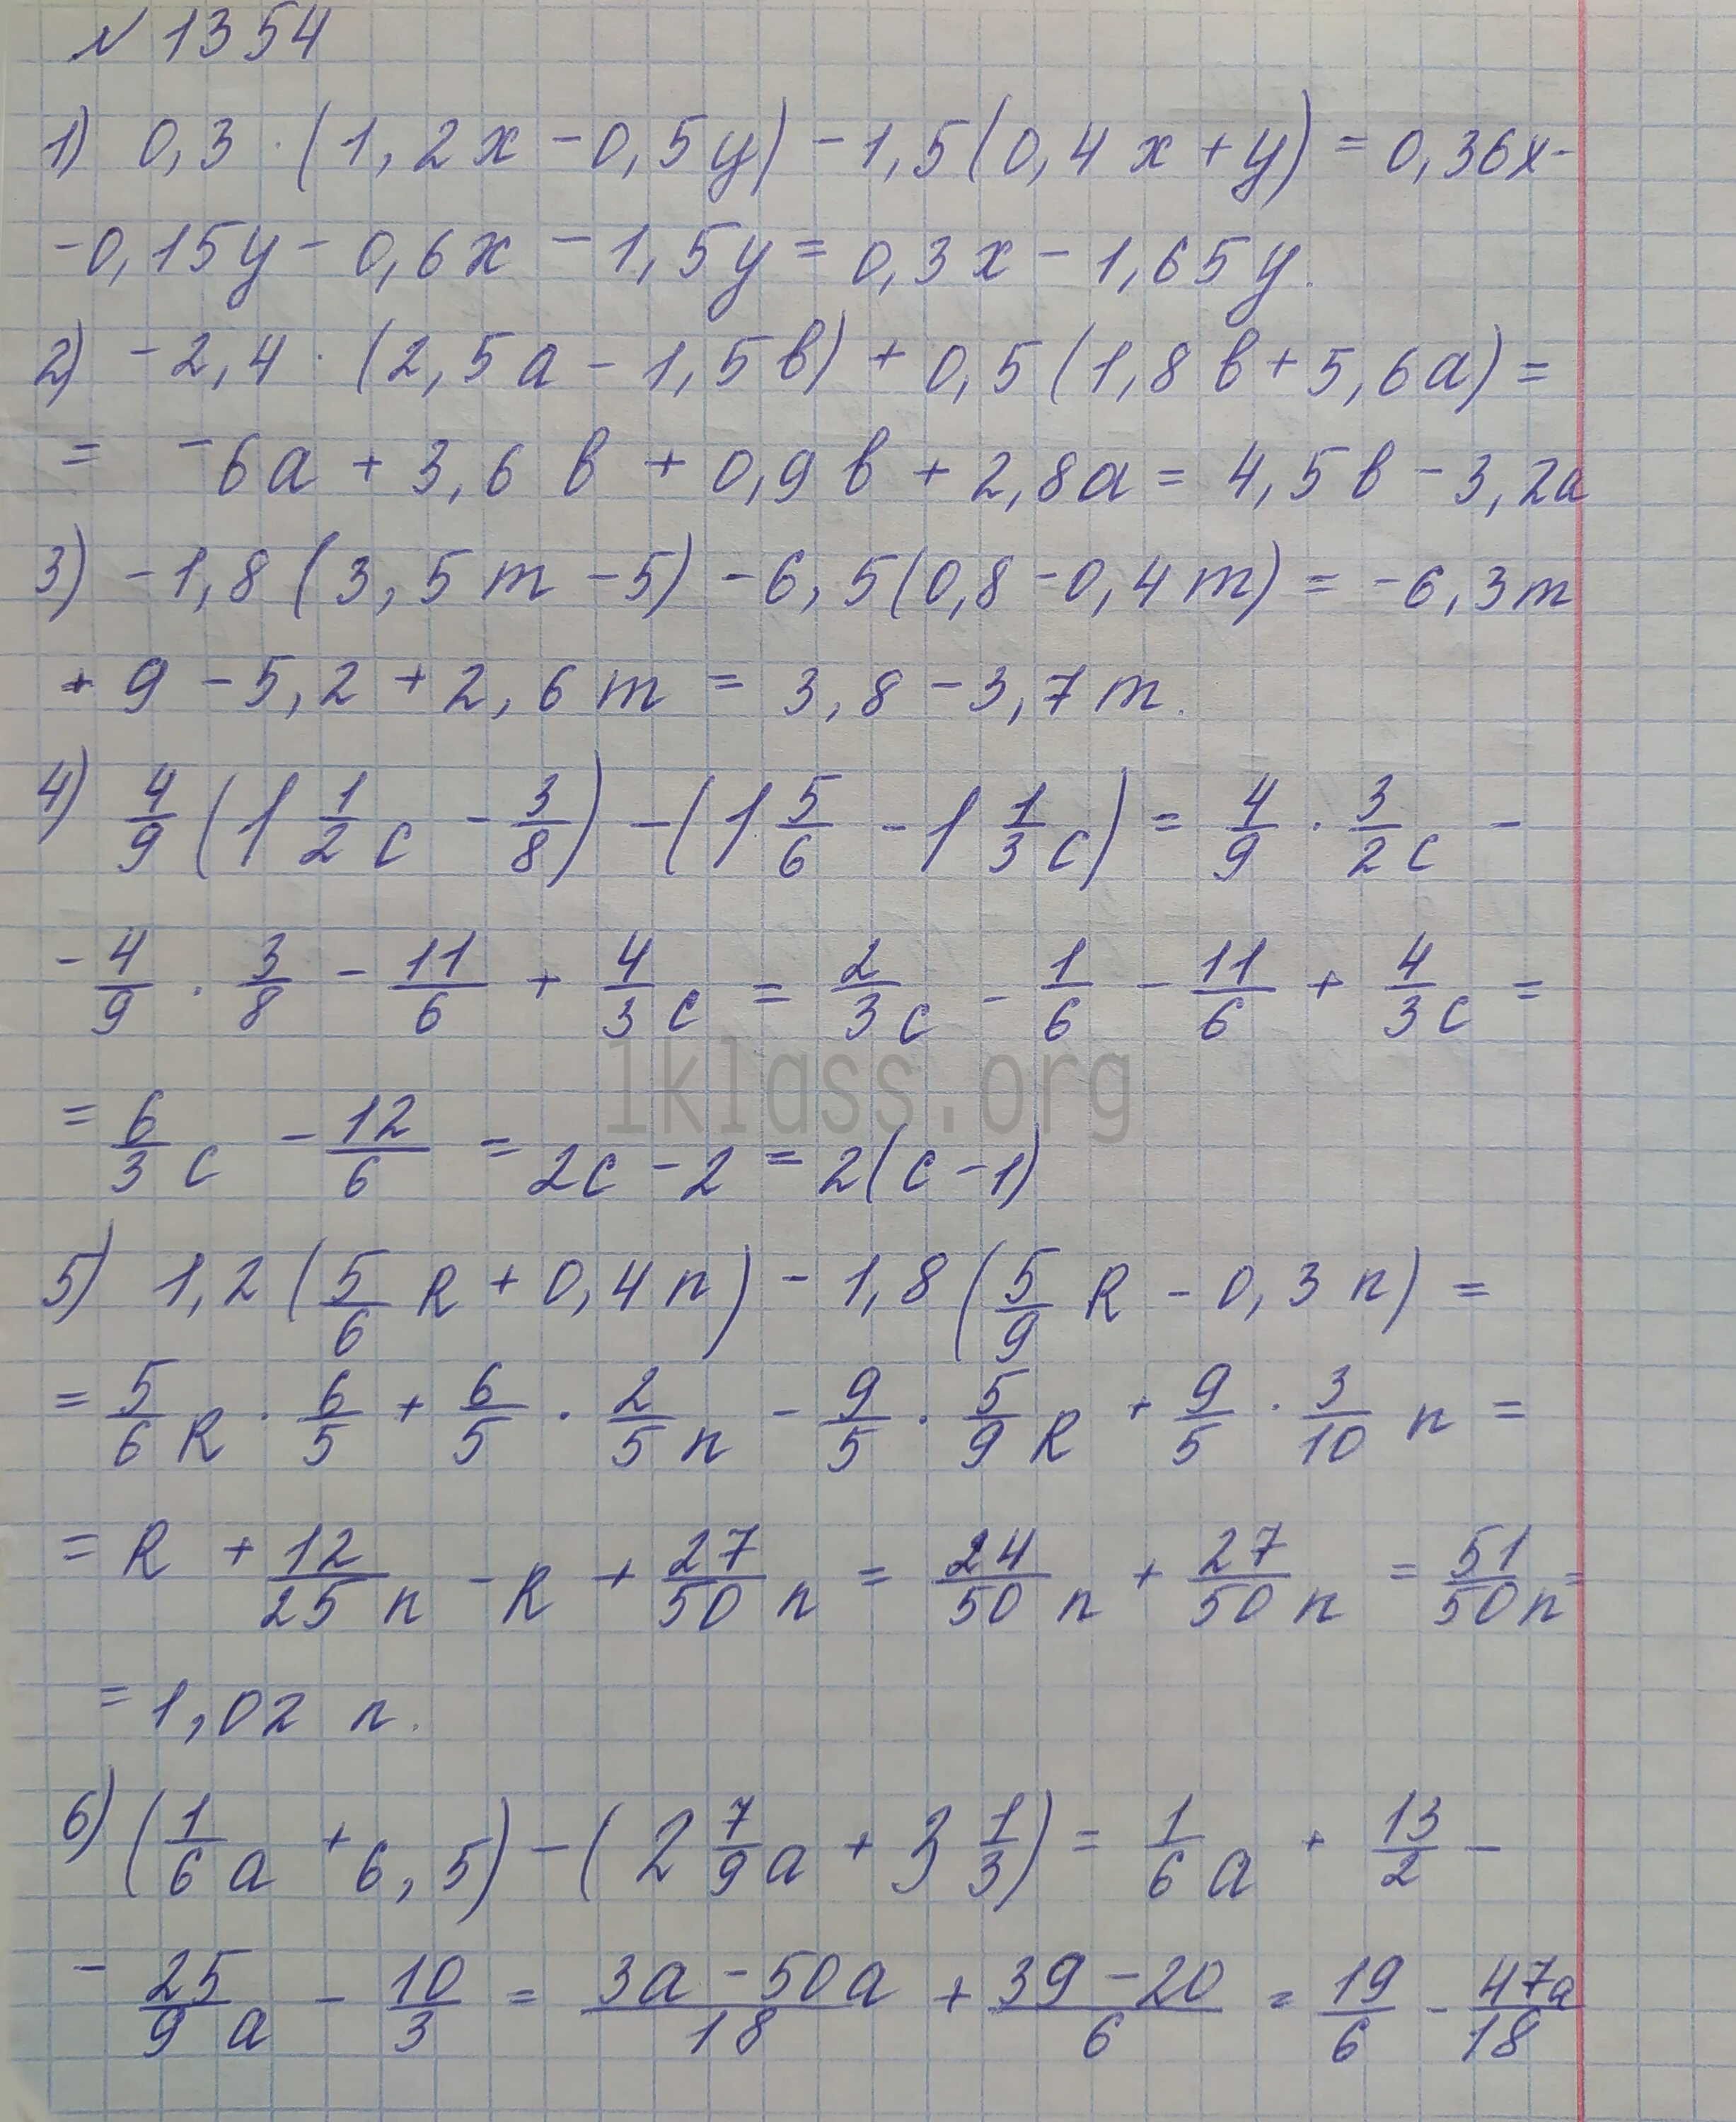 № 1354
1) 0,3 · (1,2x - 0,5y) - 1,5(0,4x + y) = 0,36x -
- 0,15y - 0,6x - 1,5y = 0,3x - 1,65y.
2) - 2,4 · (2,5a - 1,5b) + 0,5(1,8b + 5,6a) =
= -6a + 3,6b + 0,9b + 2,8a = 4,5b - 3,2a
3) -1,8(3,5m - 5) - 6,5(0,8 - 0,4m) = -6,3m
+ 9 - 5,2 + 2,6m = 3,8 - 3,7m.
4) 4/9 (1 1/2 c - 3/8) - (1 5/6 - 1 1/3 c) = 4/9 · 3/2 c -
- 4/9 · 3/8 - 11/6 + 4/3 c = 2/3 c - 1/6 - 11/6 + 4/3 c =
1klass.org
= 6/3 c - 12/6 = 2c - 2 = 2(c - 1)
5) 1,2(5/6 k + 0,4n) - 1,8(5/9 k - 0,3n) =
= 5/6 k · 6/5 + 6/5 · 2/5 n - 9/5 · 5/9 k + 9/5 · 3/10 n =
= k + 12/25 n - k + 27/50 n = 24/50 n + 27/50 n = 51/50 n =
= 1,02 n.
6) (1/6 a + 6,5) - (2 7/9 a + 3 1/3) = 1/6 a + 13/2 -
- 25/9 a - 10/3 = 3a - 50a/18 + 39 - 20/6 = 19/6 - 47a/18